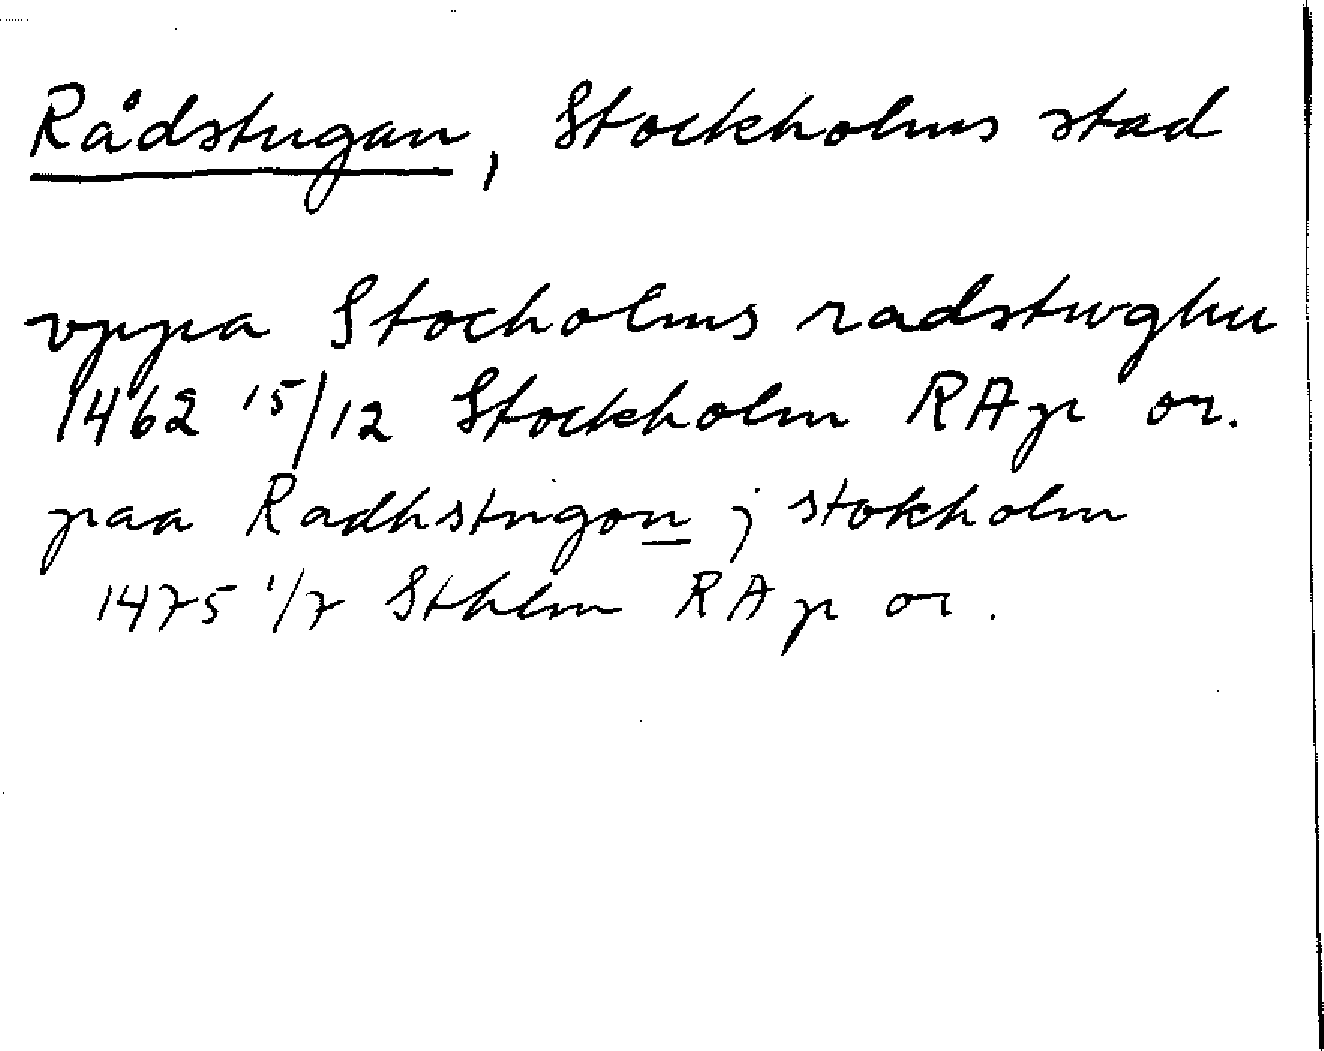 Rådstugan, Stockholms stad
vppa Stocholms radstwghu
1462 15/12 Stockholm RAp or.
paa Radhstugon j stokholm
1475 1/7 Sthlm RAp or.